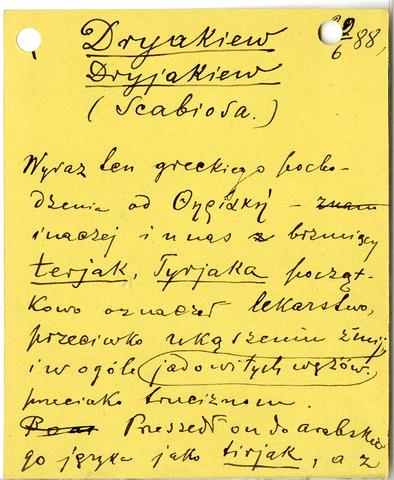 Dryakiew
29/6 88,
Dryjakiew
(Scabiosa.)
Wyraz ten greckiego pocho-
dzenia od Θηριακή – znam
inaczej i u nas z brzmiący
terjak, Tyrjaka począt-
kowo oznaczał lekarstwo,
przeciwko ukąszeniu żmij,
i w ogóle jadowitych wężów,
przeciwko truciznom.
Przeszedł on do arabskie-
go języka jako tirjak, a z